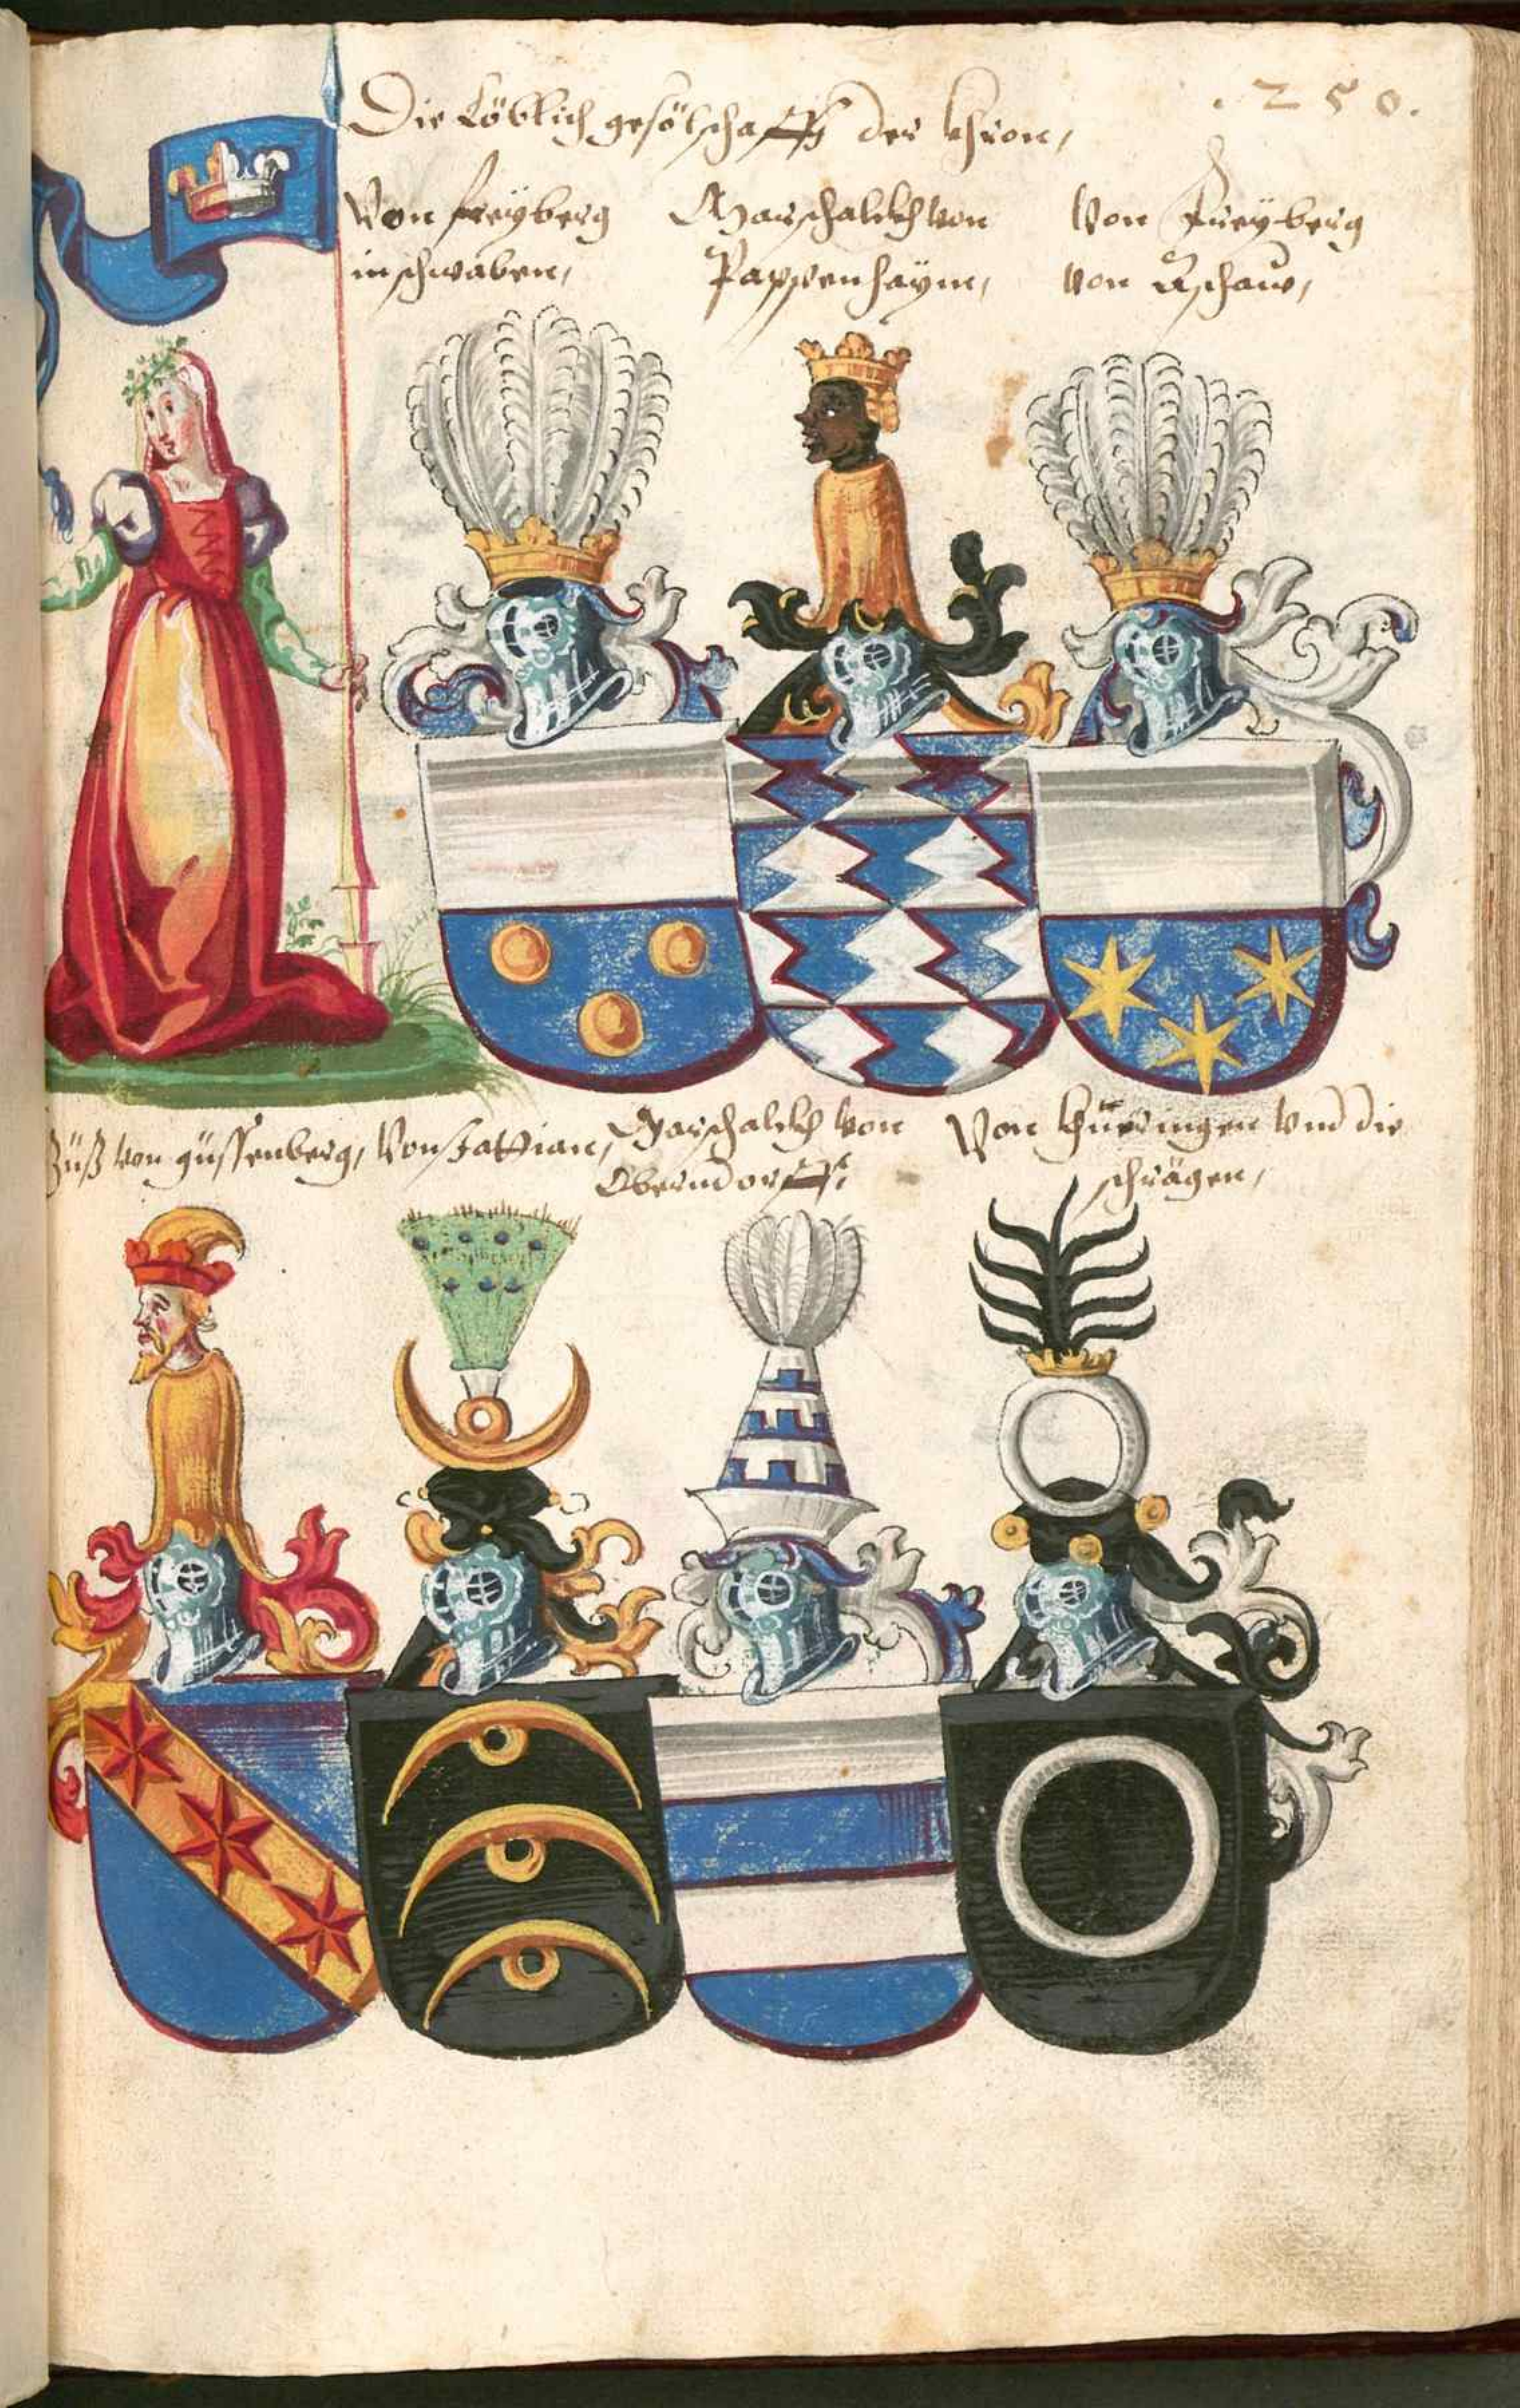 Die Löblich geselschafft der khron,
.250.
Von freyberg
in schwaben,
Marschalckh von
Pappenhaym,
Von Freyberg
von Aschaw,
Güß von güssenberg,
Von
Marschalckh von
Oberndorff,
Von Güeringen vnd die
schrägen,